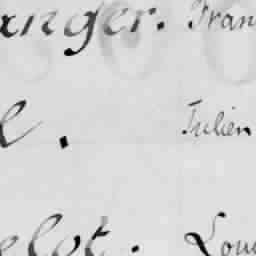 anger. Fran
l. Julien
elot. Lou